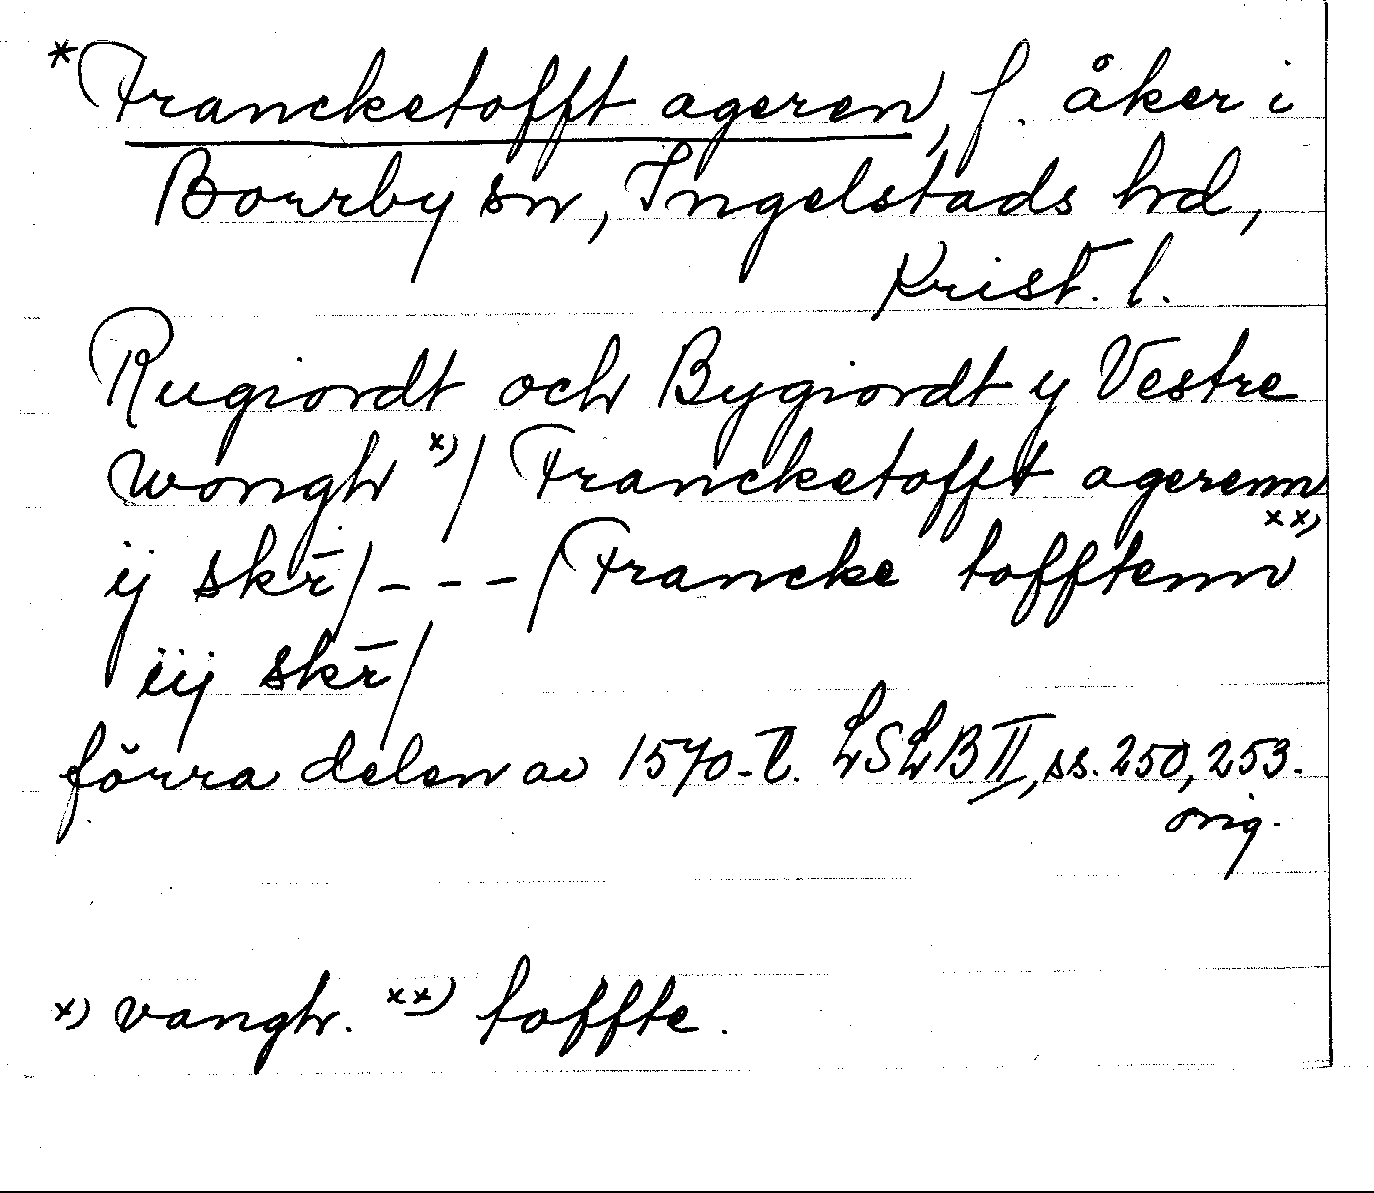 *Francketofft ageren, f. åker i
Borrby sn, Ingelstads hd,
Krist. l.
Rugiordt och Bygiordt y Vestre
wongh x)/ Francketofft agerenn
ij skr̄/ - - - /Francke tofftenn xx)
iij skr̄/
förra delen av 1570-t. LSLB II, ss. 250, 253.
orig.
x) vangh. xx) toffte.